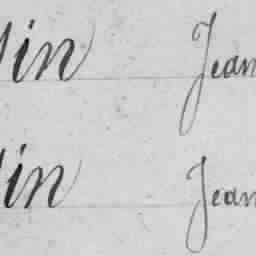 tin Jean
tin Jean